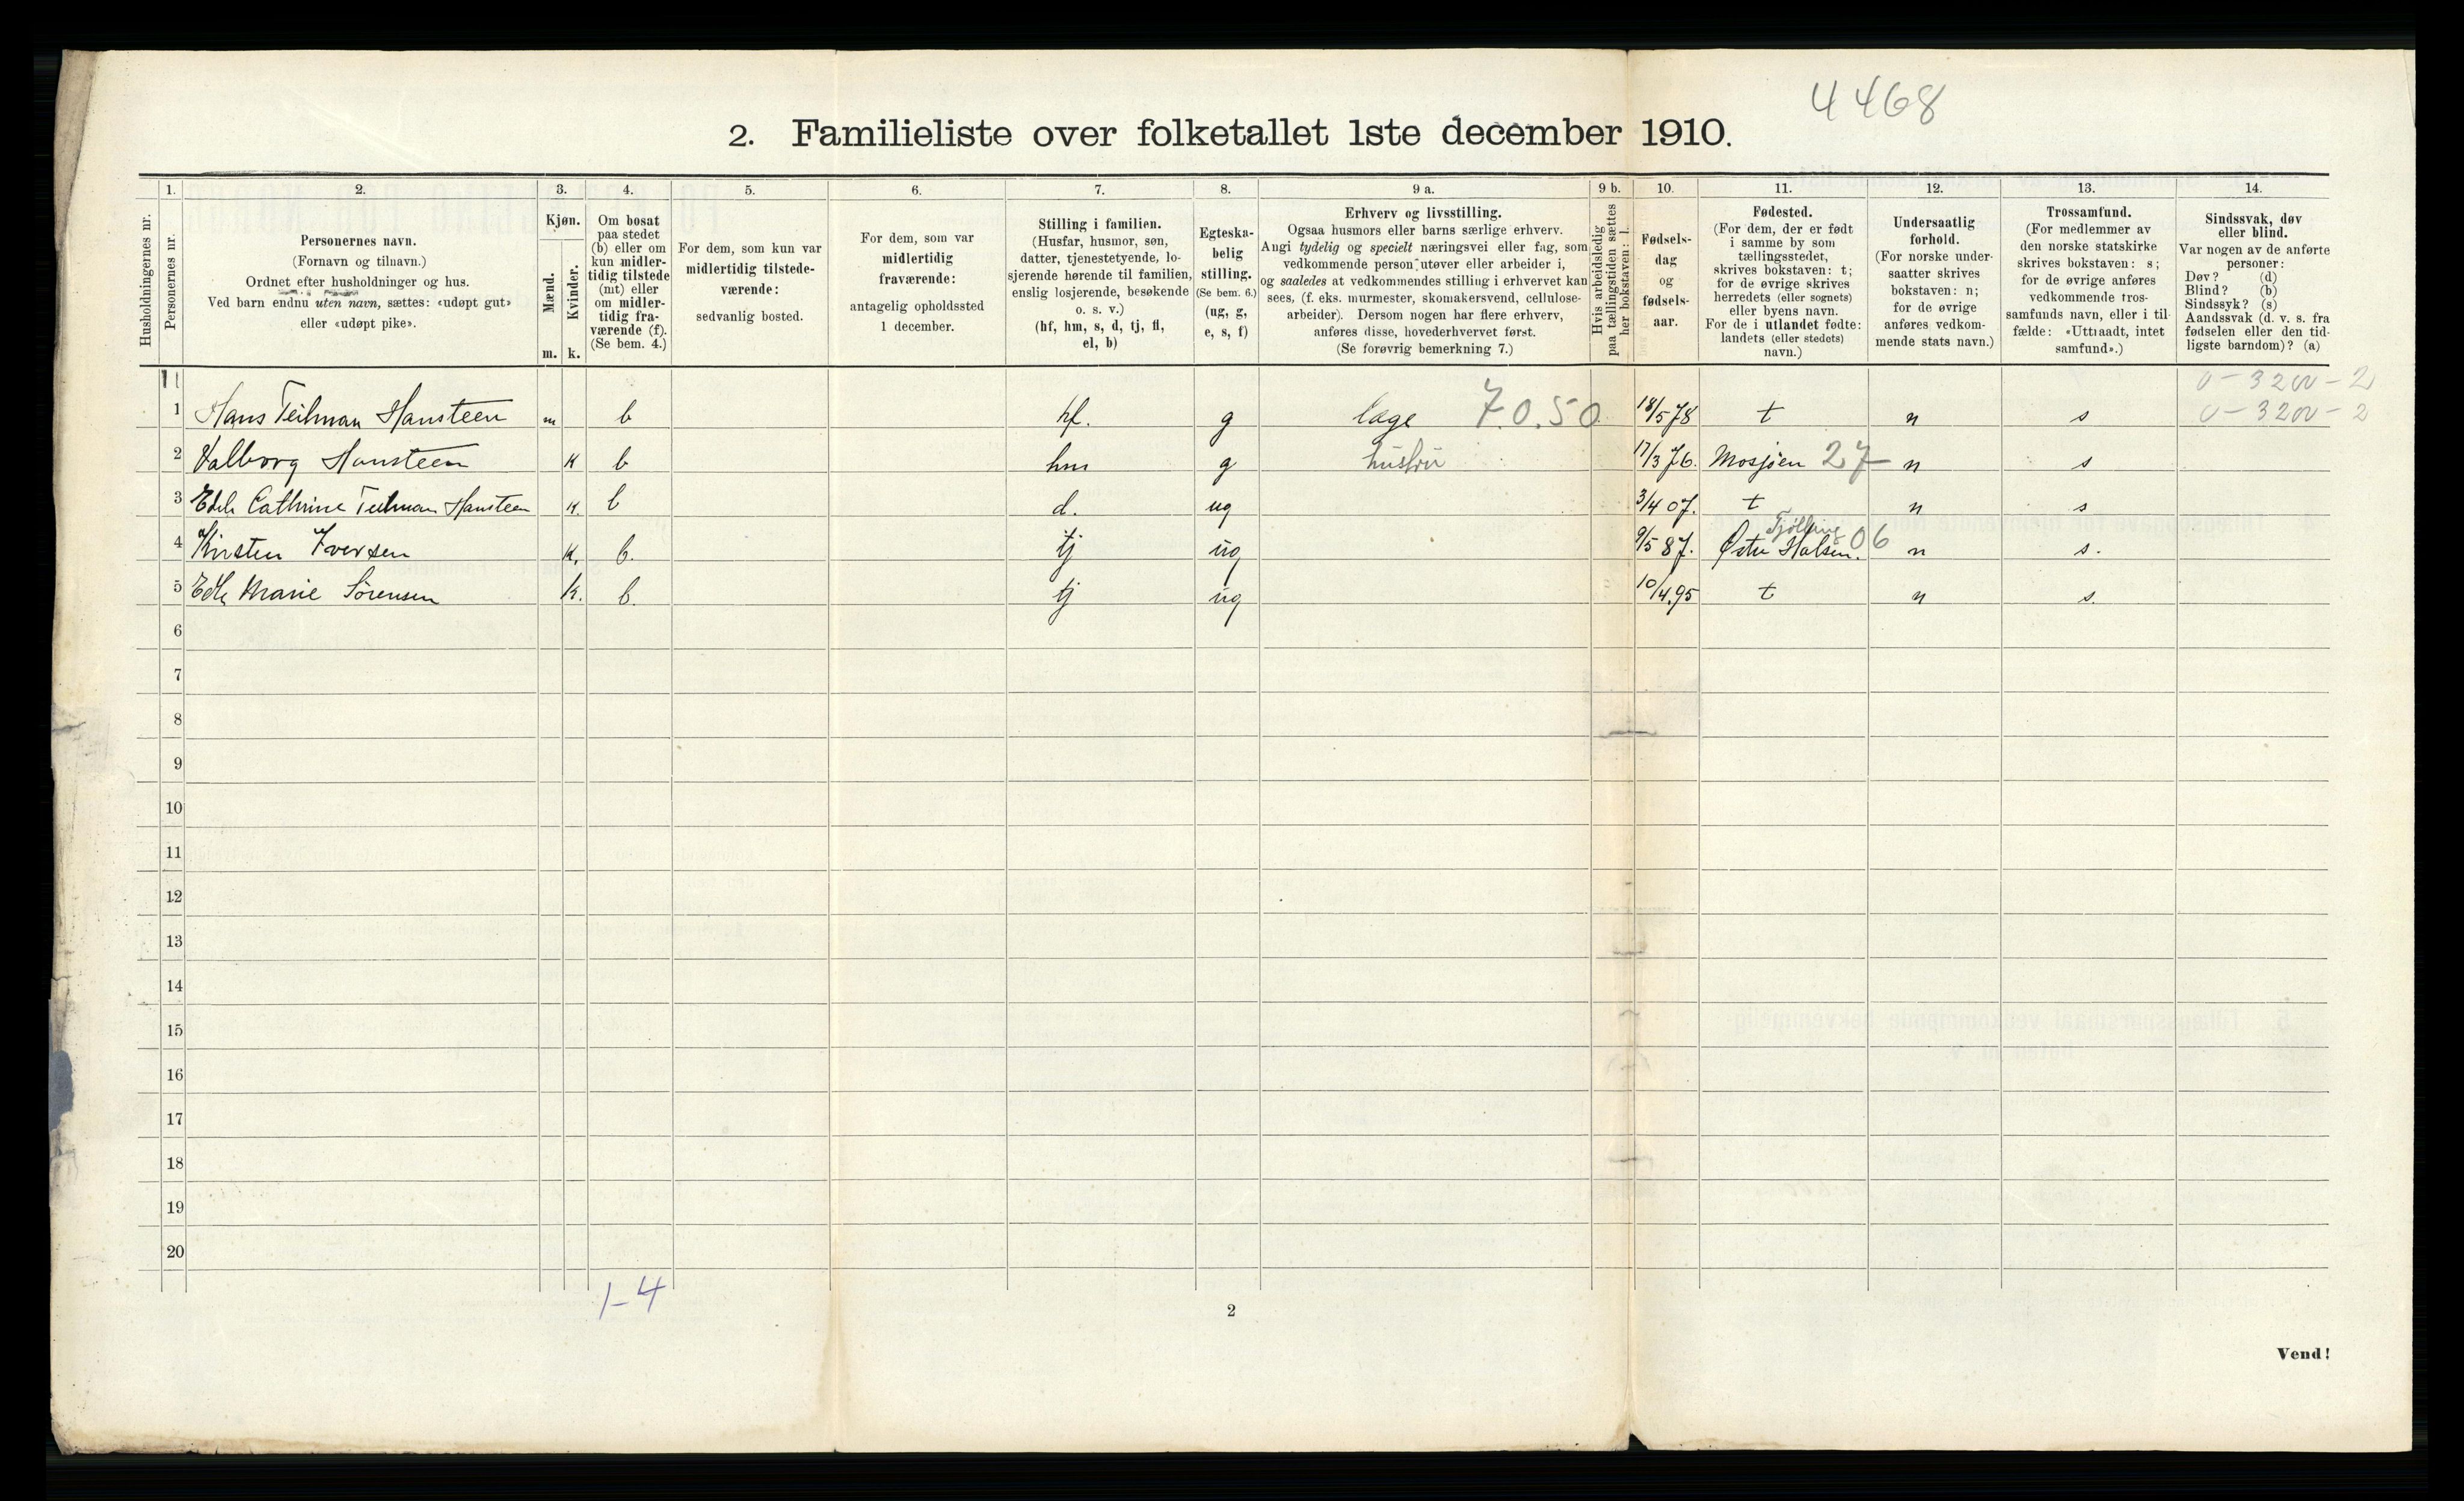 4468
2. Familieliste over folketallet 1ste december 1910.
Husholdningernes nr.
1.
Personernes nr.
2.
Personernes navn.
(Fornavn og tilnavn.)
Ordnet efter husholdninger og hus.
Ved barn endnu uten navn, sættes: «udøpt gut»
eller «udøpt pike».
3.
Kjøn.
Mænd.
Kvinder.
m. k.
4.
Om bosat
paa stedet
(b) eller om
kun midler-
tidig tilstede
(mt) eller
om midler-
tidig fra-
værende (f).
(Se bem. 4.)
5.
For dem, som kun var
midlertidig tilstede-
værende:
sedvanlig bosted.
6.
For dem, som var
midlertidig
fraværende:
antagelig opholdssted
1 december.
7.
Stilling i familien.
(Husfar, husmor, søn,
datter, tjenestetyende, lo-
sjerende hørende til familien,
enslig losjerende, besøkende
o. s. v.)
(hf, hm, s, d, tj, fl,
el, b)
8.
Egteska-
belig
stilling.
(Se bem. 6.)
(ug, g,
e, s, f)
9 a.
Erhverv og livsstilling.
Ogsaa husmors eller barns særlige erhverv.
Angi tydelig og specielt næringsvei eller fag, som
vedkommende person utøver eller arbeider i,
og saaledes at vedkommendes stilling i erhvervet kan
sees, (f. eks. murmester, skomakersvend, cellulose-
arbeider). Dersom nogen har flere erhverv,
anføres disse, hovederhvervet først.
(Se forøvrig bemerkning 7.)
9 b.
Hvis arbeidsledig
paa tællingstiden sættes
her bokstaven: l.
10.
Fødsels-
dag
og
fødsels-
aar.
11.
Fødested.
(For dem, der er født
i samme by som
tællingsstedet,
skrives bokstaven: t;
for de øvrige skrives
herredets (eller sognets)
eller byens navn.
For de i utlandet fødte:
landets (eller stedets)
navn.)
12.
Undersaatlig
forhold.
(For norske under-
saatter skrives
bokstaven: n;
for de øvrige
anføres vedkom-
mende stats navn.)
13.
Trossamfund.
(For medlemmer av
den norske statskirke
skrives bokstaven: s;
for de øvrige anføres
vedkommende tros-
samfunds navn, eller i til-
fælde: «Uttraadt, intet
samfund».)
14.
Sindssvak, døv
eller blind.
Var nogen av de anførte
personer:
Døv? (d)
Blind? (b)
Sindssyk? (s)
Aandssvak (d. v. s. fra
fødselen eller den tid-
ligste barndom)? (a)
0-3200-2
1 Hans Teilman Hansteen m b hf. g læge 7.0.50 18/5 78 t n s 0-3200-2
2 Valborg Hansteen k b hm g hustru 17/3 76. Mosjøen 27 n s
3 Edele Cathrine Teilman Hansteen k. b d. ug 3/4 07. t n s
Tjølling
4 Kirsten Iversen k. b. tj ug 9/5 87. Østre Halsen. 06 n s.
5 Edle Marie Sørensen k. b. tj ug 10/4 95 t n s.
6
7
8
9
10
11
12
13
14
15
16
17
18
19
20
1-4
2
Vend!